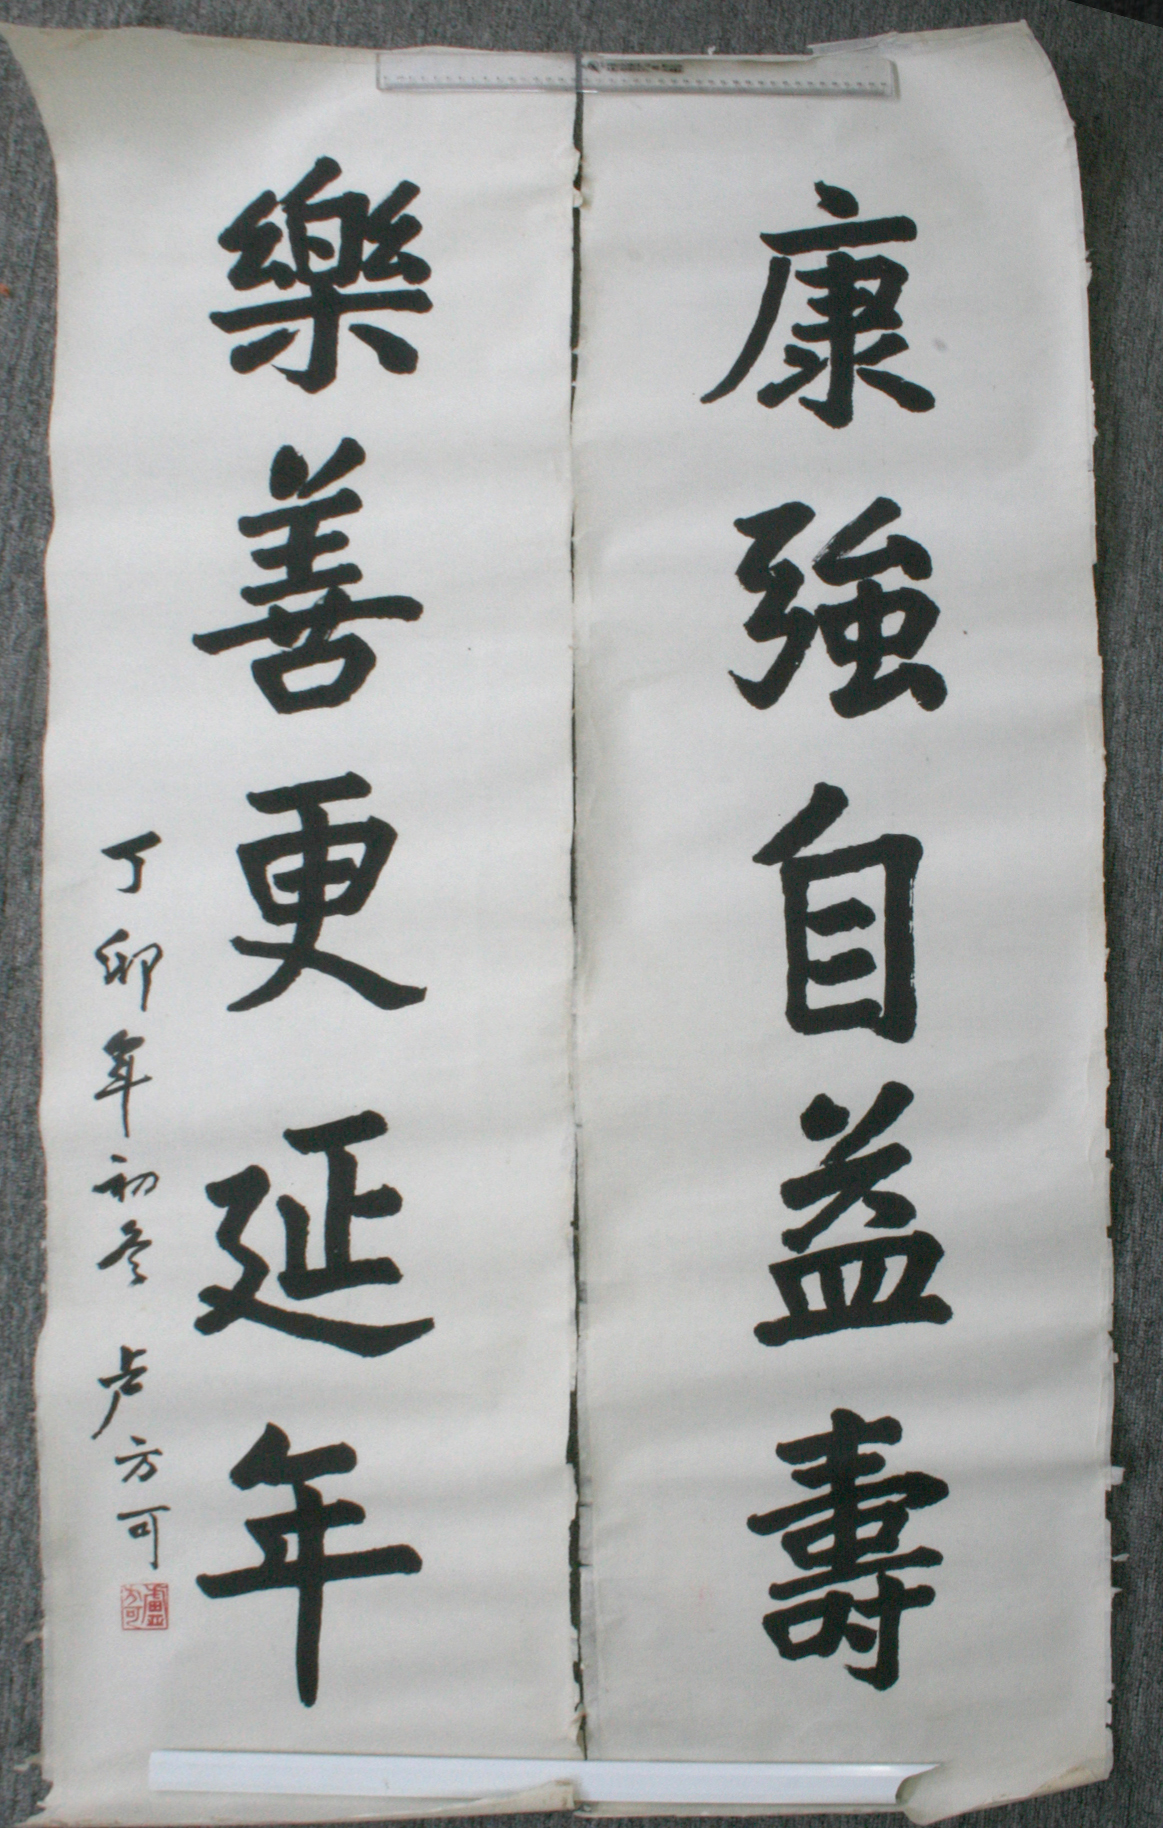 康強自益壽
樂善更延年
丁卯年初冬 卢方可
盧方可